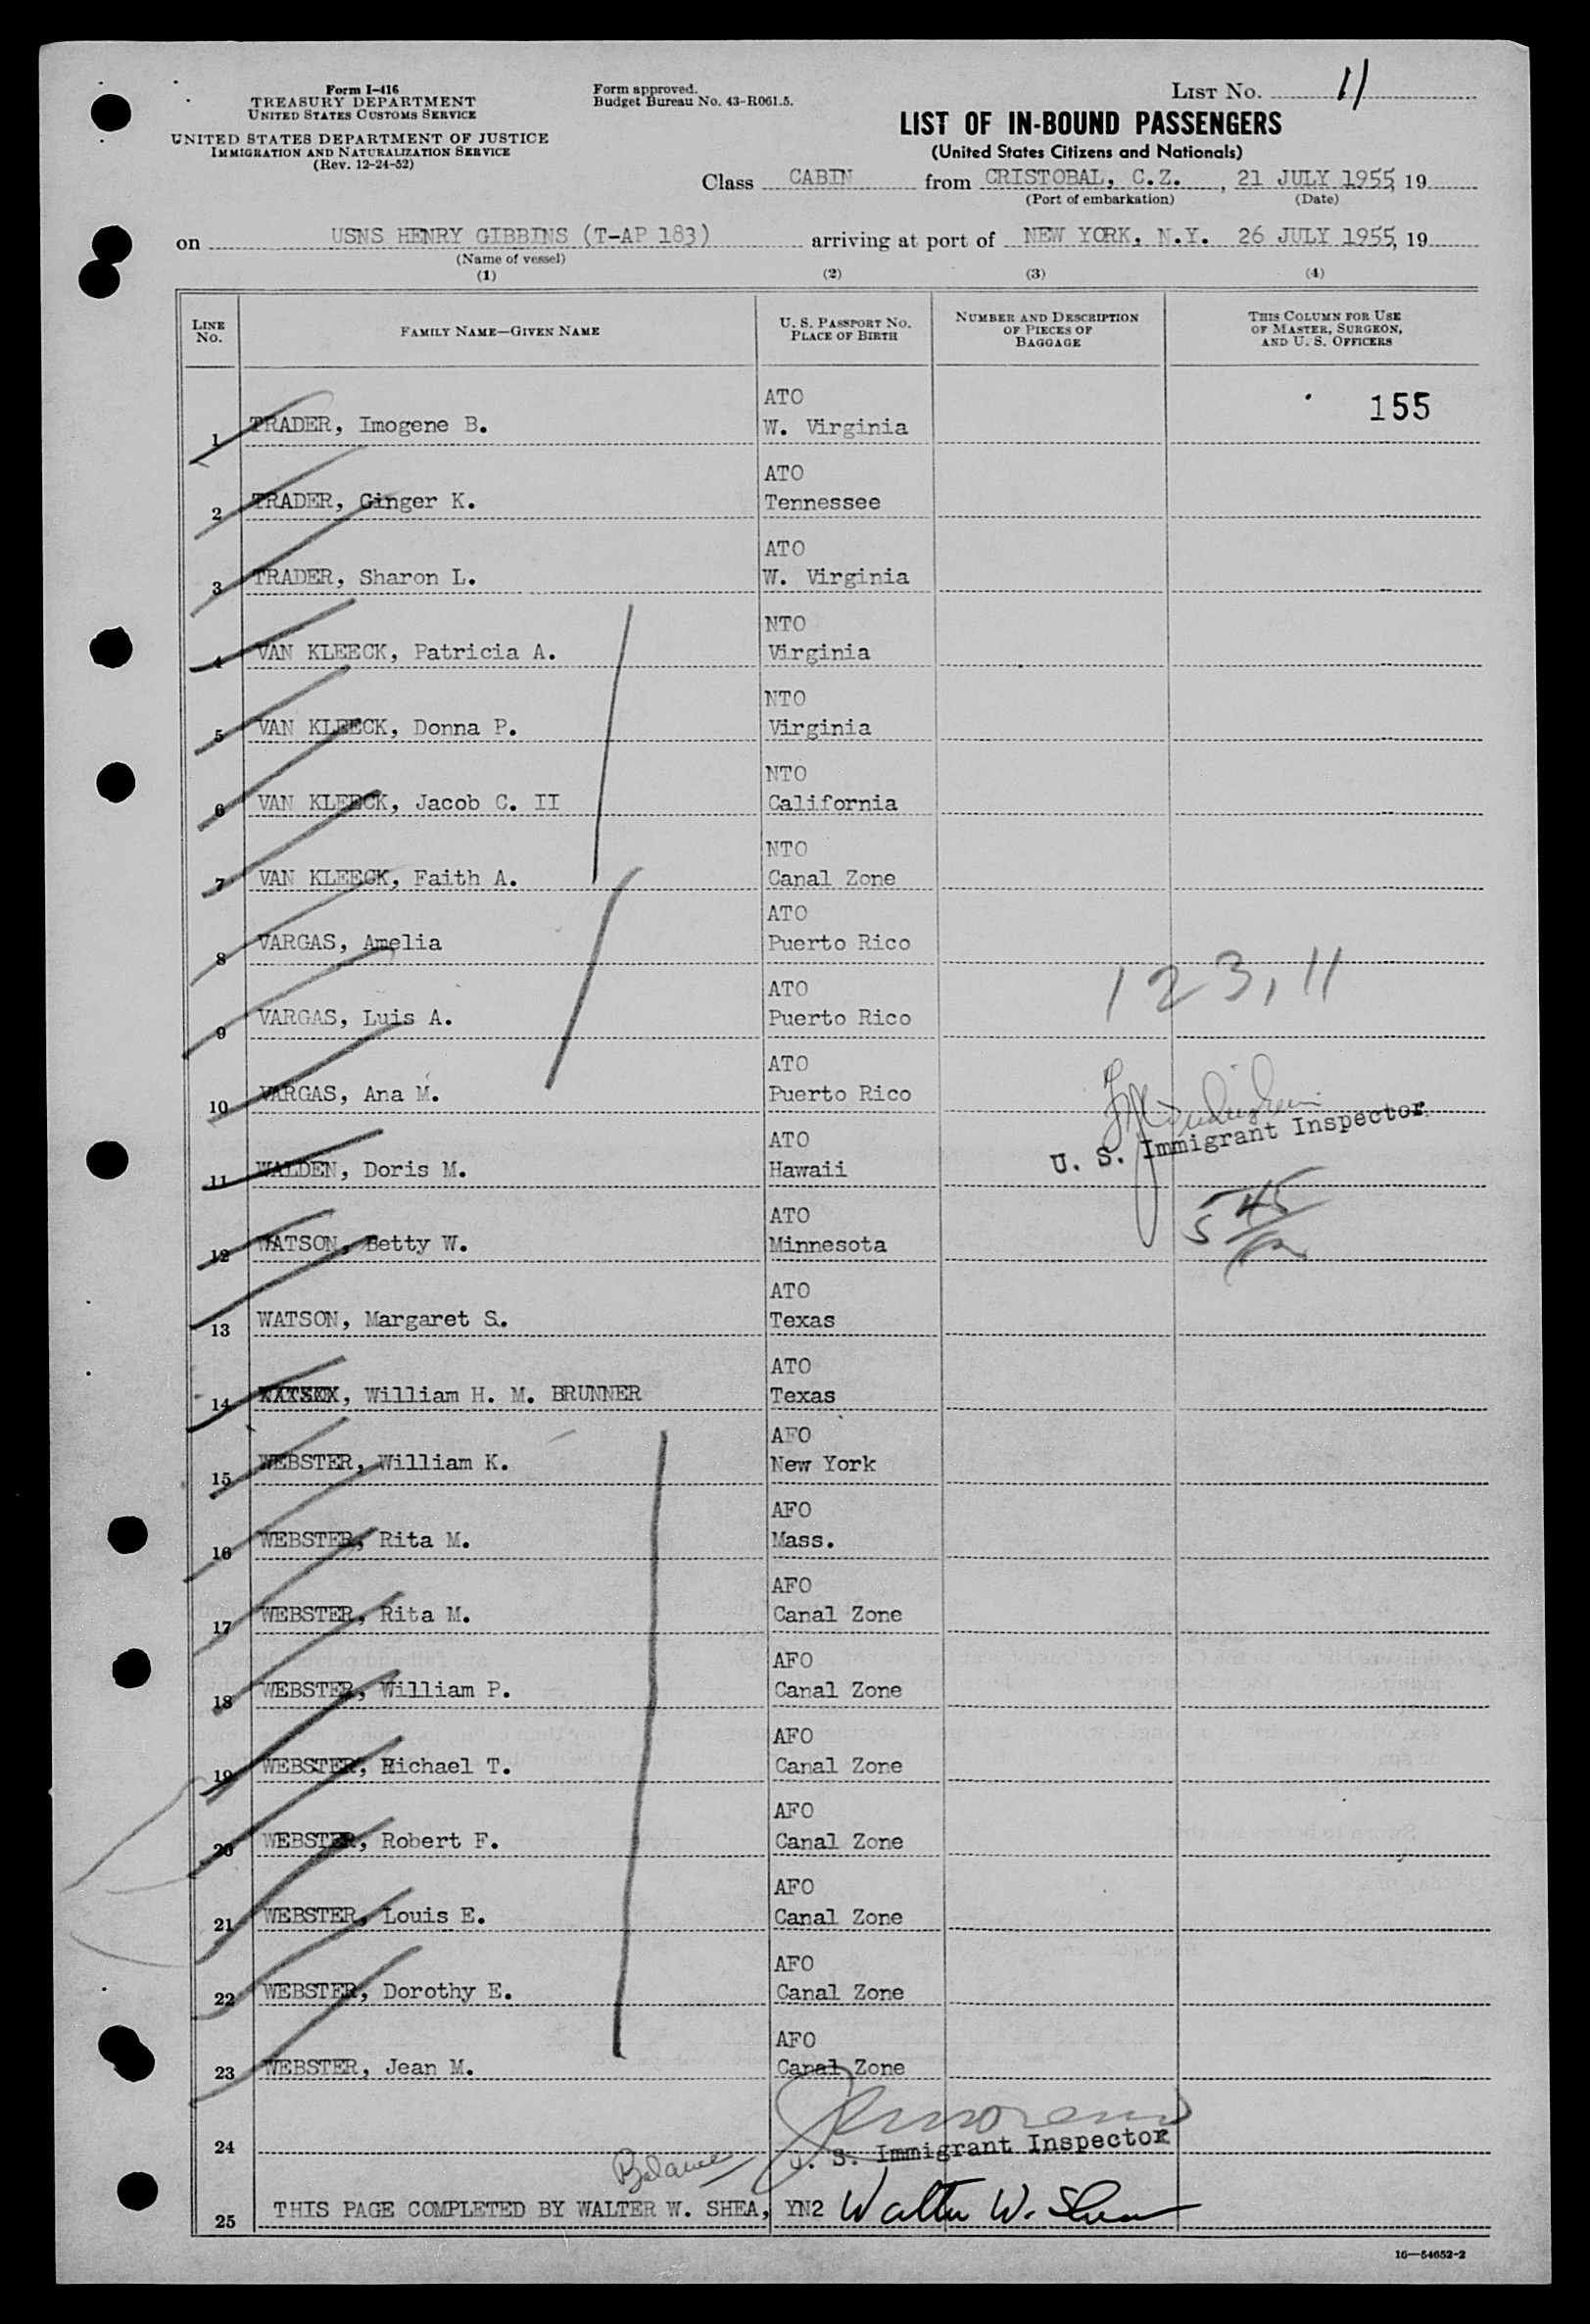 Form I-416
TREASURY DEPARTMENT
UNITED STATES CUSTOMS SERVICE
UNITED STATES DEPARTMENT OF JUSTICE
IMMIGRATION AND NATURALIZATION SERVICE
(Rev. 12-24-52)
Form approved.
Budget Bureau No. 43-R061.5.
LIST NO. 11
LIST OF IN-BOUND PASSENGERS
(United States Citizens and Nationals)
Class CABIN from CRISTOBAL, C.Z., 21 JULY 1955, 19
(Port of embarkation) (Date)
on USNS HENRY GIBBINS (T-AP 183) arriving at port of NEW YORK, N.Y. 26 JULY 1955, 19
(Name of vessel)
(1) (2) (3) (4)
LINE NO. FAMILY NAME—GIVEN NAME U. S. PASSPORT NO. PLACE OF BIRTH NUMBER AND DESCRIPTION OF PIECES OF BAGGAGE THIS COLUMN FOR USE OF MASTER, SURGEON, AND U. S. OFFICERS
ATO 155
1 TRADER, Imogene B. W. Virginia
ATO
2 TRADER, Ginger K. Tennessee
ATO
3 TRADER, Sharon L. W. Virginia
NTO
4 VAN KLEECK, Patricia A. Virginia
NTO
5 VAN KLEECK, Donna P. Virginia
NTO
6 VAN KLEECK, Jacob C. II California
NTO
7 VAN KLEECK, Faith A. Canal Zone
ATO
8 VARGAS, Amelia Puerto Rico
123,11
ATO
9 VARGAS, Luis A. Puerto Rico
ATO
10 VARGAS, Ana M. Puerto Rico
U. S. Immigrant Inspector
ATO
11 WALDEN, Doris M. Hawaii
5 45
ATO
12 WATSON, Betty W. Minnesota
ATO
13 WATSON, Margaret S. Texas
ATO
14 , William H. M. BRUNNER Texas
AFO
15 WEBSTER, William K. New York
AFO
16 WEBSTER, Rita M. Mass.
AFO
17 WEBSTER, Rita M. Canal Zone
AFO
18 WEBSTER, William P. Canal Zone
AFO
19 WEBSTER, Richael T. Canal Zone
AFO
20 WEBSTER, Robert F. Canal Zone
AFO
21 WEBSTER, Louis E. Canal Zone
AFO
22 WEBSTER, Dorothy E. Canal Zone
AFO
23 WEBSTER, Jean M. Canal Zone
24 U. S. Immigrant Inspector
Balance
25 THIS PAGE COMPLETED BY WALTER W. SHEA, YN2 Walter W. Shea
16—54652-2